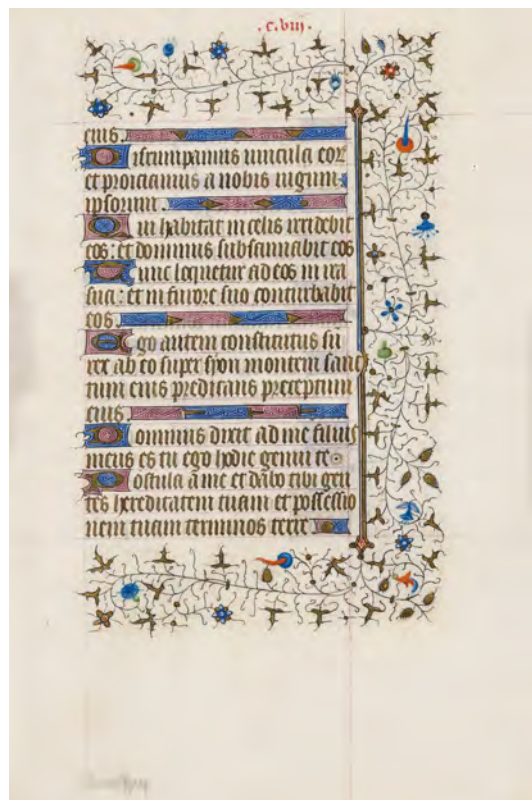 .c.viij.
eius.
Disrumpamus vincula eor
et proiciamus a nobis iugum
ipsorum.
Qui habitat in celis irridebit
eos: et dominus subsannabit eos
Tunc loquetur ad eos in ira
sua: et in furore suo conturbabit
eos.
Ego autem constitutus sū
rex ab eo super syon montem sanc
tum eius predicans preceptum
eius.
Dominus dixit ad me filius
meus es tu ego hodie genui te.
Postula a me et dabo tibi gen
tes hereditatem tuam et possessio
nem tuam terminos terre